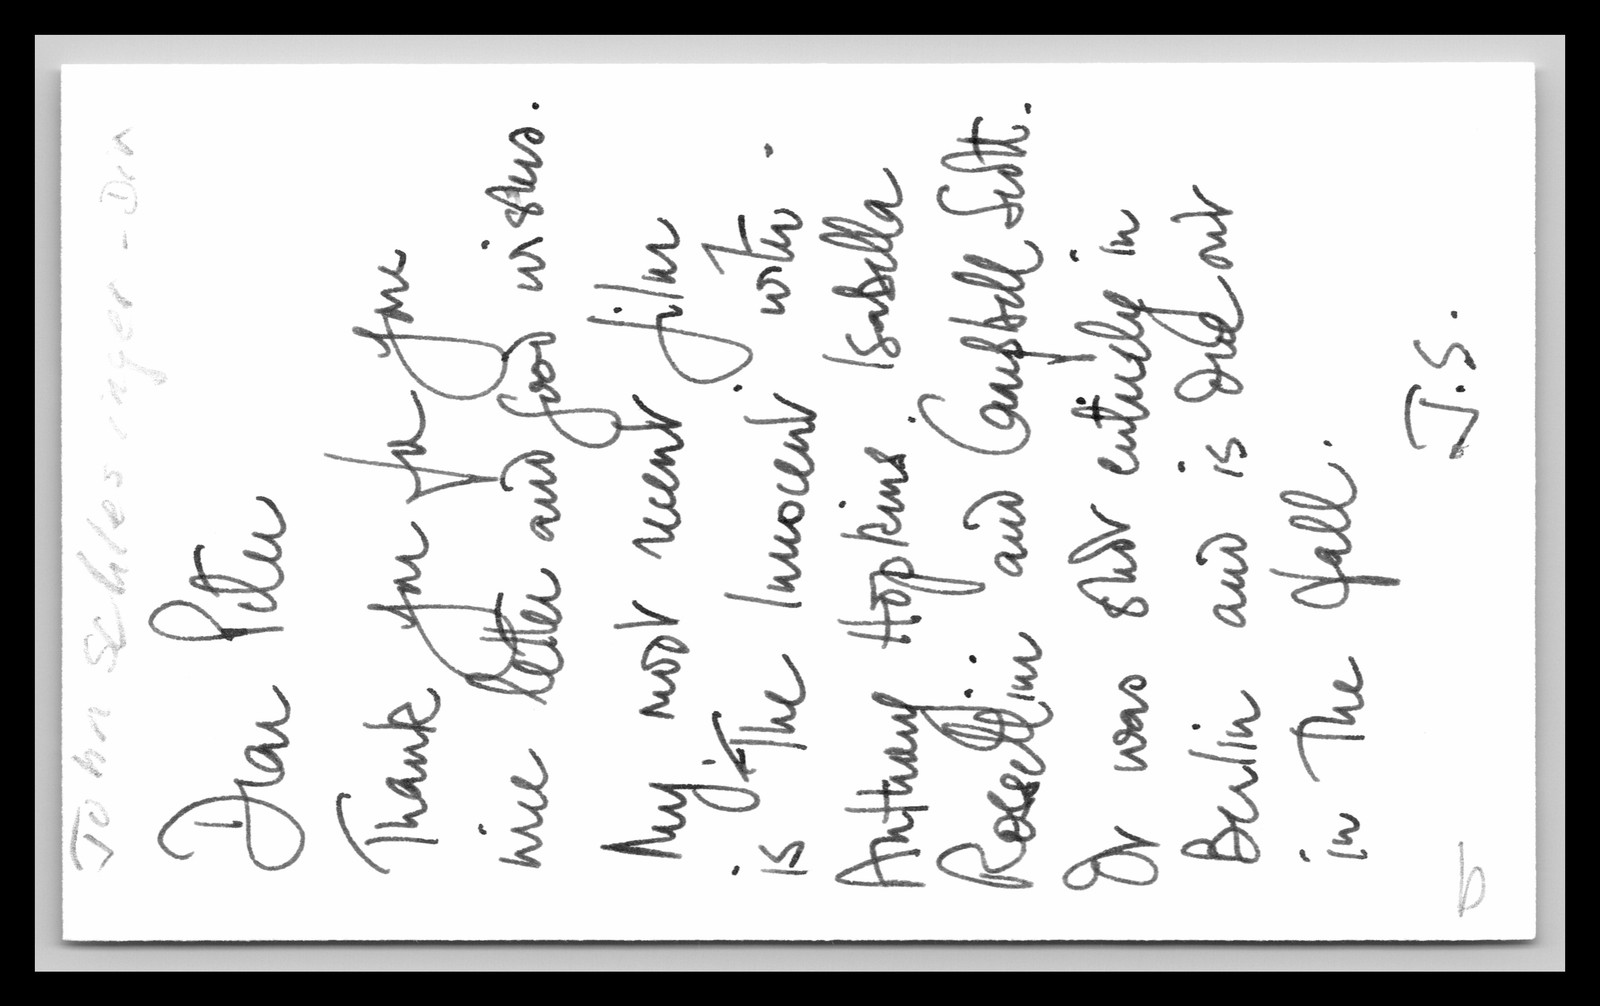 John Schlesinger - Dir
Dear Peter
Thank you for your
nice letter and good wishes.
My most recent film
is 'The Innocent' with
Anthony Hopkins, Isabella
Rosellini and Campbell Scott.
It was shot entirely in
Berlin and is due out
in the fall.
J.S.
b